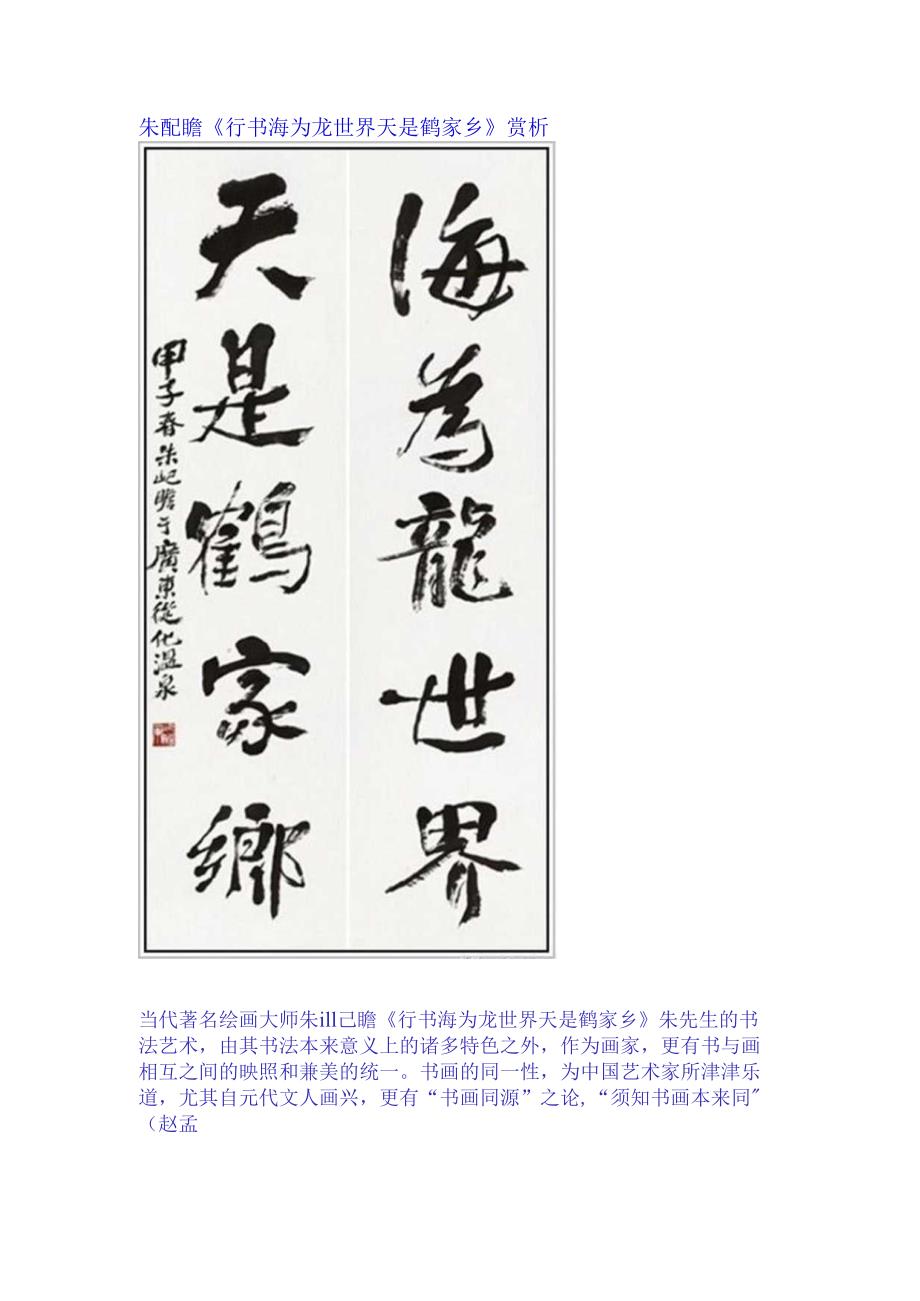 朱配瞻《行书海为龙世界天是鹤家乡》赏析
海為龍世界
天是鶴家鄉
甲子春朱屺瞻于廣東從化溫泉
当代著名绘画大师朱ill己瞻《行书海为龙世界天是鹤家乡》朱先生的书
法艺术，由其书法本来意义上的诸多特色之外，作为画家，更有书与画
相互之间的映照和兼美的统一。书画的同一性，为中国艺术家所津津乐
道，尤其自元代文人画兴，更有“书画同源”之论,“须知书画本来同"
（赵孟